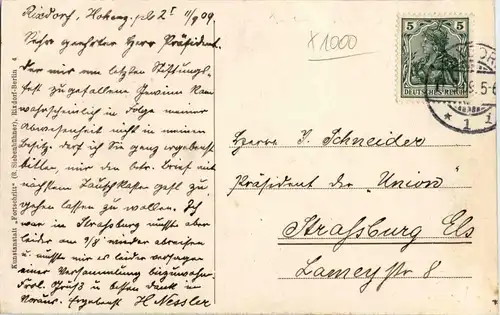 Rixdorf, Hohenz. pltz 2I 11/9 09.
Sehr geehrter Herr Präsident.
Der mir am letzten Stiftungs-
fest zugefallene Gewinn kam
wahrscheinlich in Folge meiner
Abwesenheit nicht in meinen
Besitz. darf ich Sie ganz ergebenst
bitten, mir den betr. Brief mit
nächstem gefl. zu-
gehen lassen zu wollen. Ich
war in Straßburg mußte aber
leider am 7/8 wieder abreisen
u mußte mir es leider versagen
einer Versammlung beizuwohnen
Frdl. Gruß u besten Dank im
Voraus. Ergebenst H. Nessler
Kunstanstalt „Fortschritt“ (R. Siebenhühner), Rixdorf-Berlin 4
X1000
5 5
DEUTSCHES REICH
5-6
* 1 i
Herrn J. Schneider
Präsident der „Union“
Straßburg Els
Lameystr 8